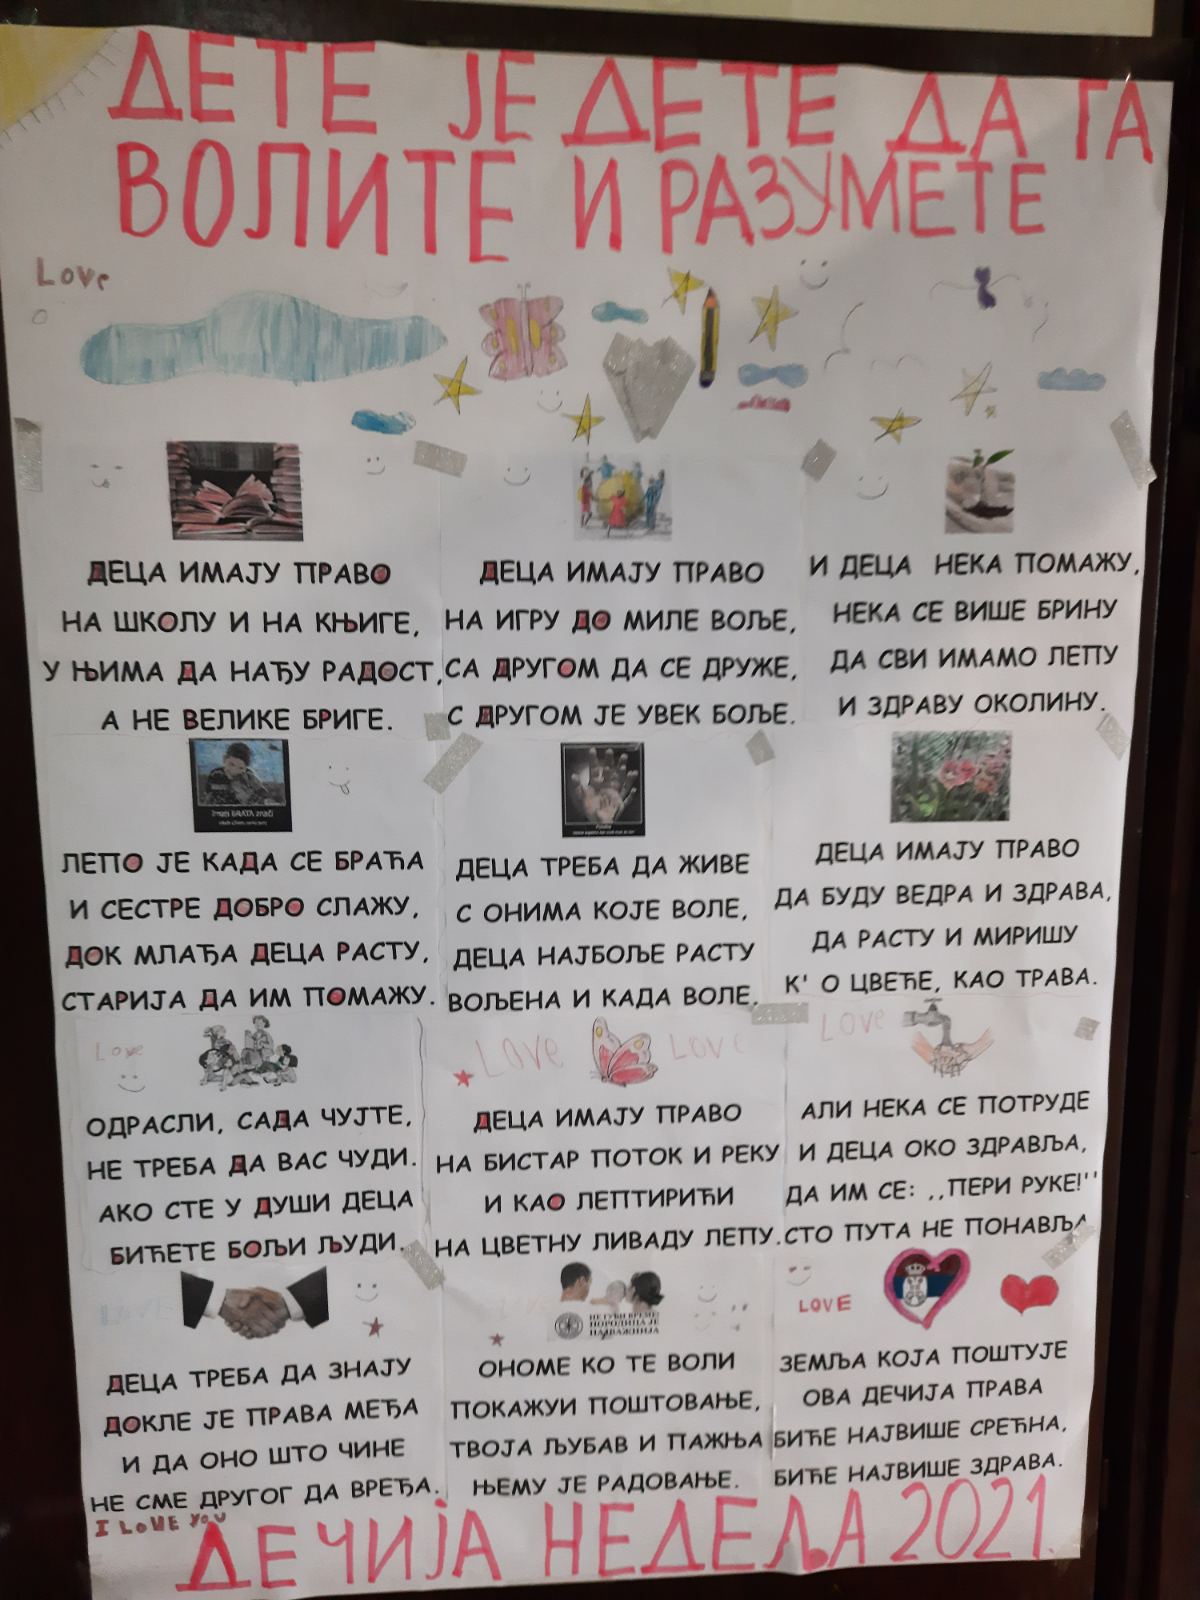 ДЕТЕ ЈЕ ДЕТЕ ДА ГА
ВОЛИТЕ И РАЗУМЕТЕ
Love
ДЕЦА ИМАЈУ ПРАВО
НА ШКОЛУ И НА КЊИГЕ,
У ЊИМА ДА НАЂУ РАДОСТ,
А НЕ ВЕЛИКЕ БРИГЕ.
ДЕЦА ИМАЈУ ПРАВО
НА ИГРУ ДО МИЛЕ ВОЉЕ,
СА ДРУГОМ ДА СЕ ДРУЖЕ,
С ДРУГОМ ЈЕ УВЕК БОЉЕ.
И ДЕЦА НЕКА ПОМАЖУ,
НЕКА СЕ ВИШЕ БРИНУ
ДА СВИ ИМАМО ЛЕПУ
И ЗДРАВУ ОКОЛИНУ.
Imati BRATA znači
ЛЕПО ЈЕ КАДА СЕ БРАЋА
И СЕСТРЕ ДОБРО СЛАЖУ,
ДОК МЛАЂА ДЕЦА РАСТУ,
СТАРИЈА ДА ИМ ПОМАЖУ.
ДЕЦА ТРЕБА ДА ЖИВЕ
С ОНИМА КОЈЕ ВОЛЕ,
ДЕЦА НАЈБОЉЕ РАСТУ
ВОЉЕНА И КАДА ВОЛЕ.
ДЕЦА ИМАЈУ ПРАВО
ДА БУДУ ВЕДРА И ЗДРАВА,
ДА РАСТУ И МИРИШУ
К' О ЦВЕЋЕ, КАО ТРАВА.
Love
ОДРАСЛИ, САДА ЧУЈТЕ,
НЕ ТРЕБА ДА ВАС ЧУДИ.
АКО СТЕ У ДУШИ ДЕЦА
БИЋЕТЕ БОЉИ ЉУДИ.
LOVE LOVE
ДЕЦА ИМАЈУ ПРАВО
НА БИСТАР ПОТОК И РЕКУ
И КАО ЛЕПТИРИЋИ
НА ЦВЕТНУ ЛИВАДУ ЛЕПУ.
LOVE
АЛИ НЕКА СЕ ПОТРУДЕ
И ДЕЦА ОКО ЗДРАВЉА,
ДА ИМ СЕ: ,,ПЕРИ РУКЕ!''
СТО ПУТА НЕ ПОНАВЉА
ДЕЦА ТРЕБА ДА ЗНАЈУ
ДОКЛЕ ЈЕ ПРАВА МЕЂА
И ДА ОНО ШТО ЧИНЕ
НЕ СМЕ ДРУГОГ ДА ВРЕЂА.
НЕ ГУБИ ВРЕМЕ!
ПОРОДИЦА ЈЕ
НАЈВАЖНИЈА
ОНОМЕ КО ТЕ ВОЛИ
ПОКАЖУИ ПОШТОВАЊЕ,
ТВОЈА ЉУБАВ И ПАЖЊА
ЊЕМУ ЈЕ РАДОВАЊЕ.
LOVE
ЗЕМЉА КОЈА ПОШТУЈЕ
ОВА ДЕЧИЈА ПРАВА
БИЋЕ НАЈВИШЕ СРЕЋНА,
БИЋЕ НАЈВИШЕ ЗДРАВА.
I LOVE YOU
ДЕЧИЈА НЕДЕЉА 2021.